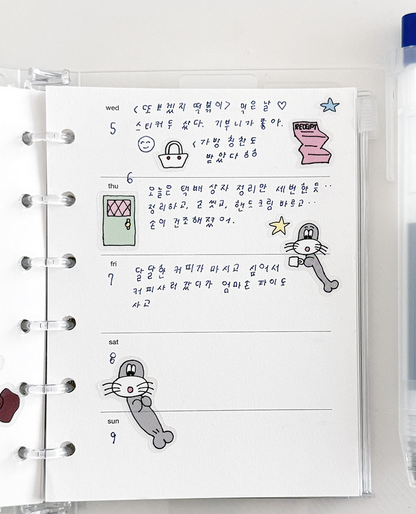 wed
5
〈또보겠지 떡볶이〉 먹은 날 ♡
스티커두 샀다. 기부니가 좋아.
RECEIPT
< 가방 칭찬도
받았다 ㅎㅎ
thu
6
오늘은 택배 상자 정리만 세번한듯..
정리하고, 손 씻고, 핸드크림 바르고..
손이 건조해졌어.
fri
7
달달한 커피가 마시고 싶어서
커피사러 갔다가 엄마손 파이도
사고
sat
8
sun
9